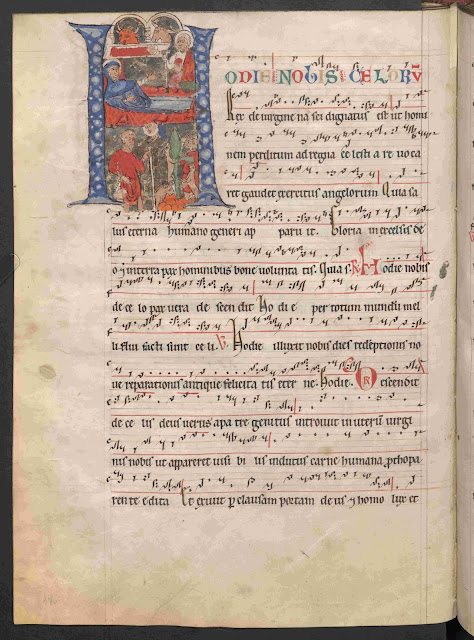 HODIE NOBIS CELORV̄
Rex de uirgine na sci dignatus est ut homi
nem perditum ad regna ce lestia re uoca
ret gaudet exercitus angelorum Quia sa
lus eterna humano generi ap paru it. Gloria in excelsis de
o ⁊ in terra pax hominibus bone uolunta tis. Quia s. R Hodie nobis
de ce lo pax uera de scen dit Ho di e per totum mundū mel
li flui facti sunt ce li. V Hodie illuxit nobis dies redēptionis no
ue reparationis antique felicita tis eter ne. Hodie. R Descendit
de ce lis deus uerus a patre genitus introiuit in uterū uirgi
nis nobis ut appareret uisi bi lis indutus carne humana ꝓthopa
rente edita Et exiuit ꝑ clausam portam de us ⁊ homo lux et